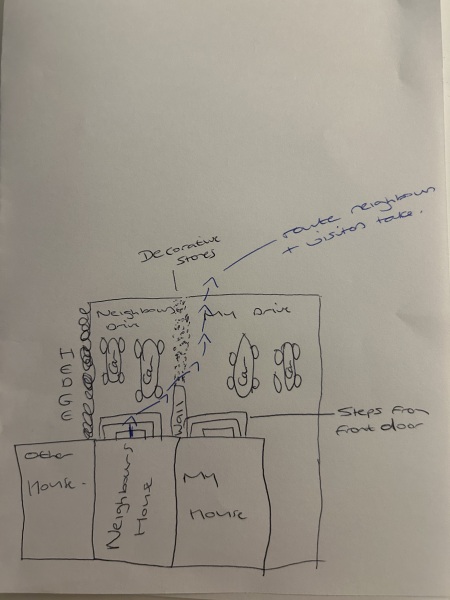 route neighbours
+ visitors take.
Decorative
Stones
Neighbours
Driv
My Drive
HEDGE
Car
Car
Car
Car
Wall
Steps from
front door
Other
House.
Neighbours
House
My
House